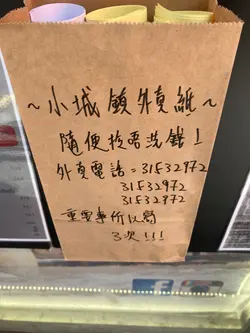 ~小城顏外賣紙~
隨便拎唔洗錢!
外賣電話=31532972
31532972
31532972
重要事所以寫
3次!!!